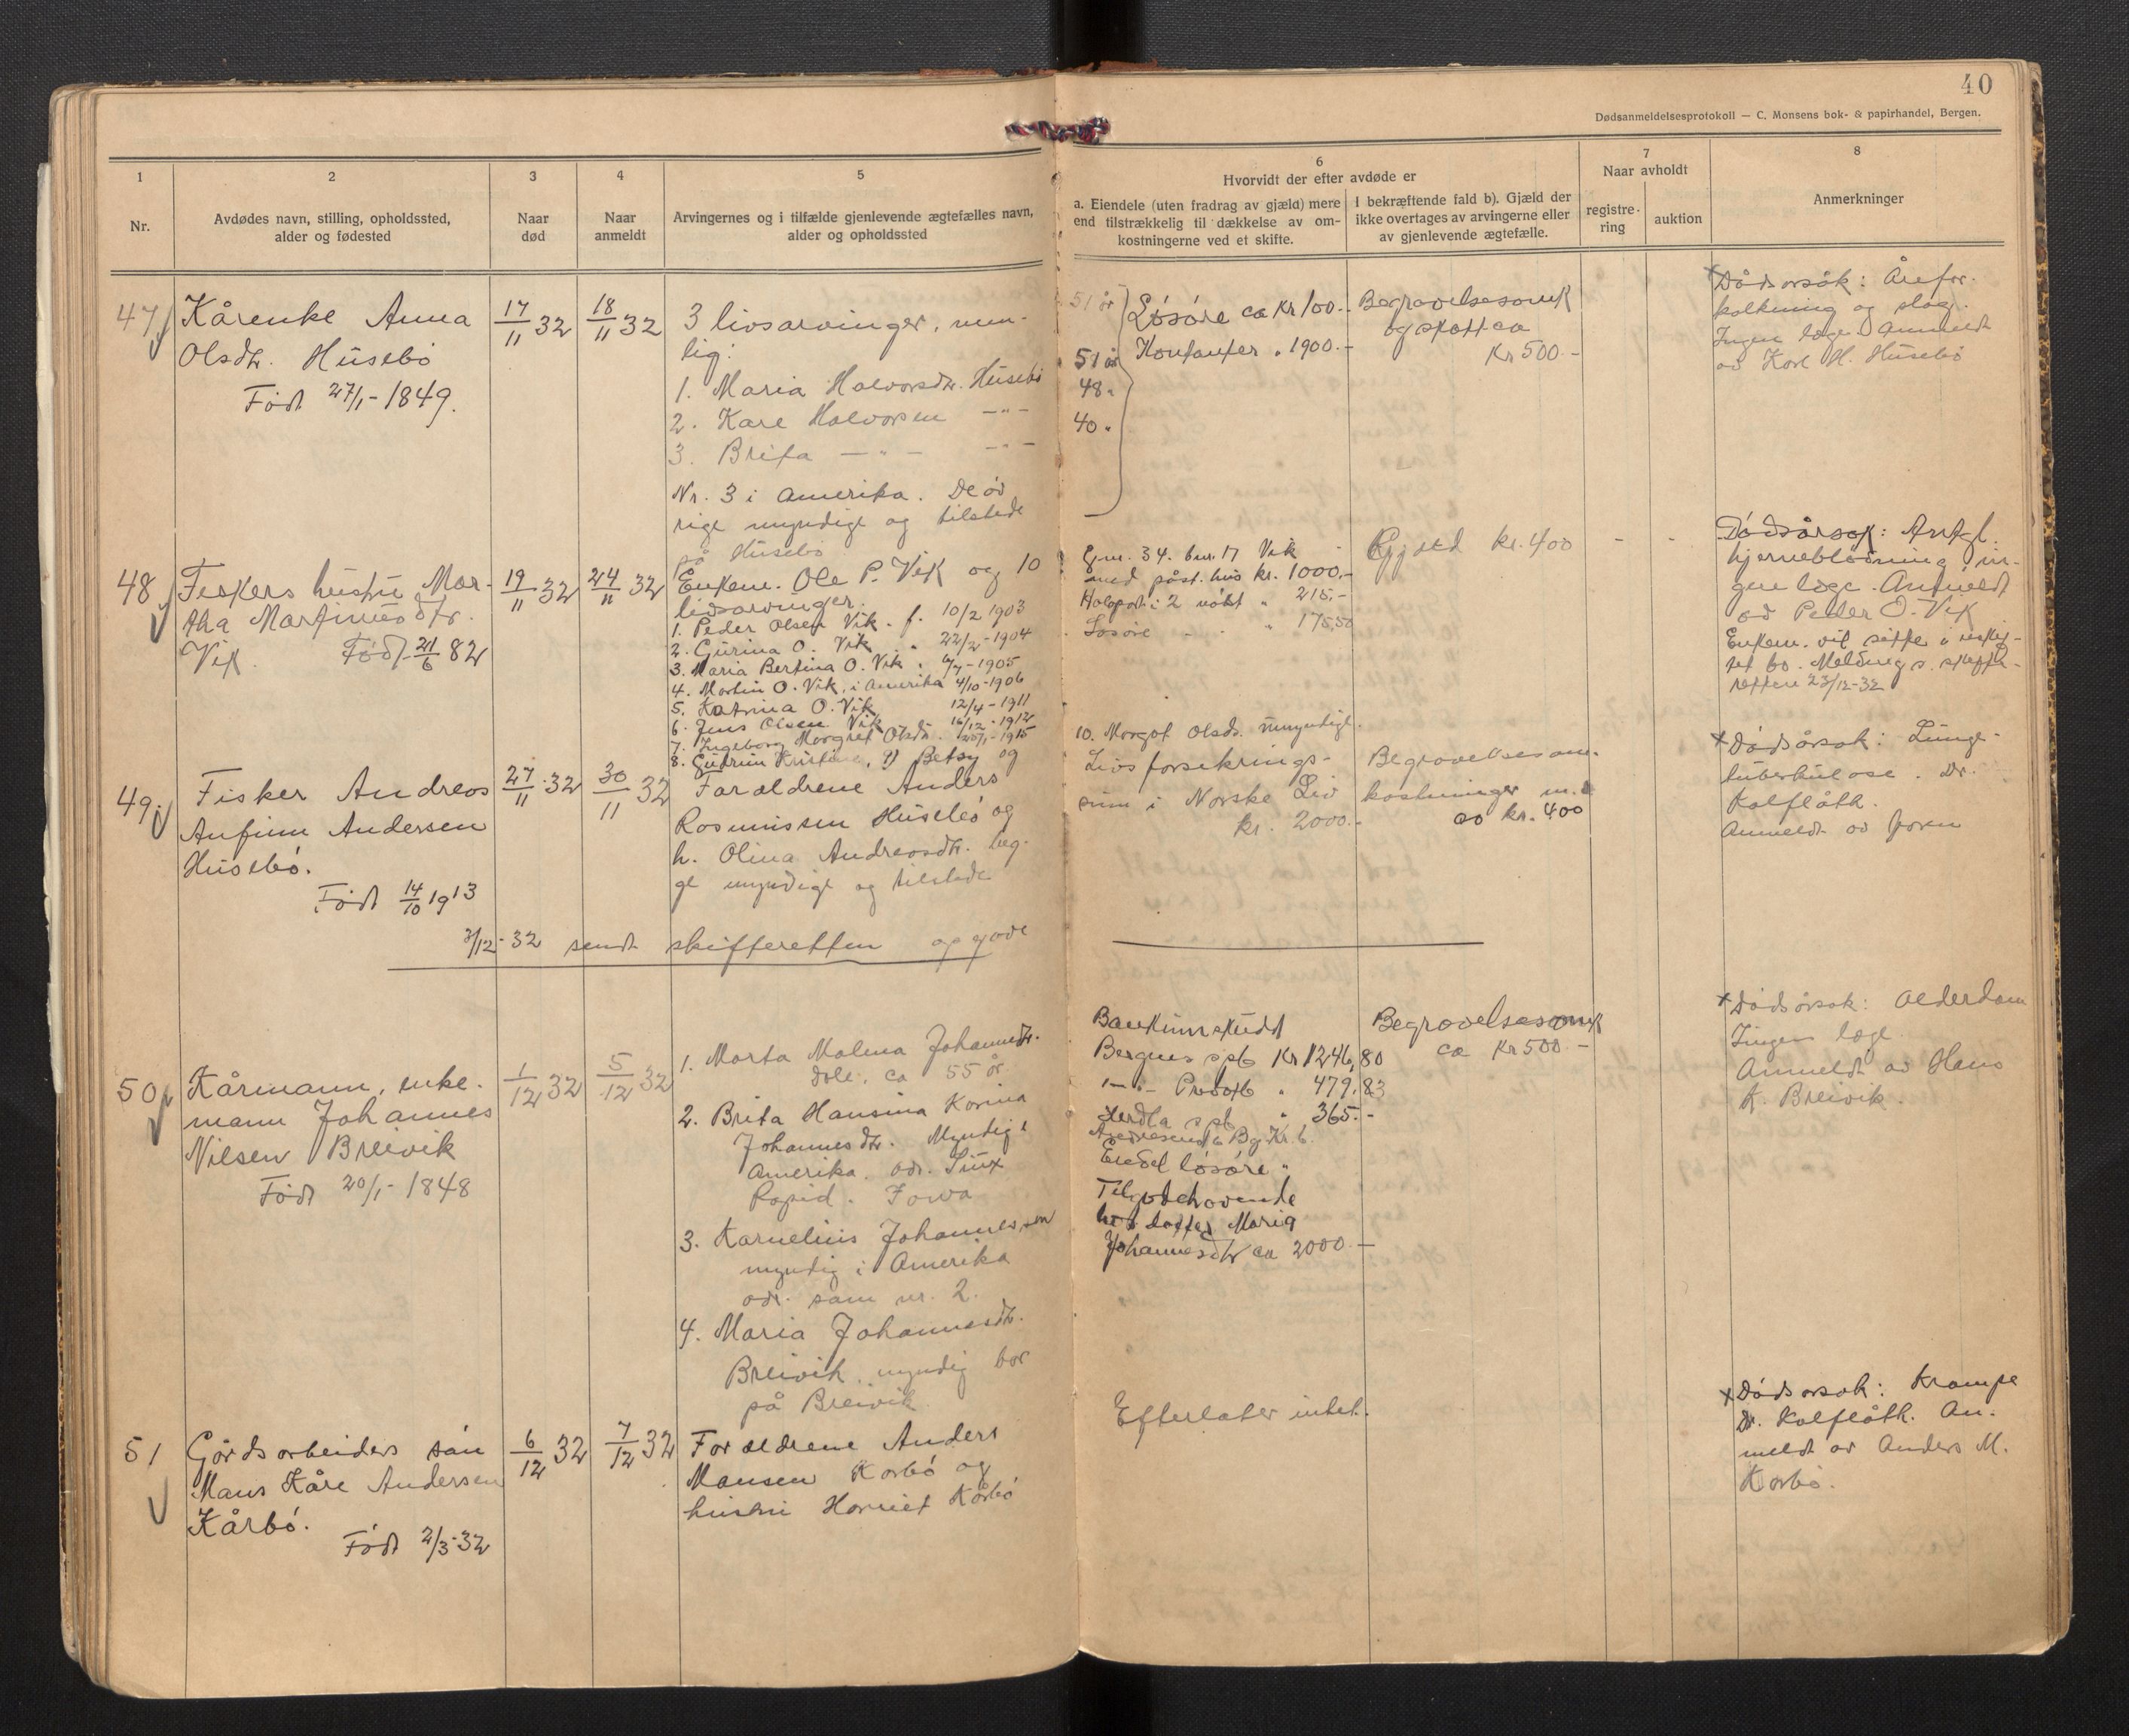 40
Dødsanmeldelsesprotokoll — C. Monsens bok- & papirhandel, Bergen.
1
Nr.
2
Avdødes navn, stilling, opholdssted,
alder og fødested
3
Naar
død
4
Naar
anmeldt
5
Arvingernes og i tilfælde gjenlevende ægtefælles navn,
alder og opholdssted
6
Hvorvidt der efter avdøde er
a. Eiendele (uten fradrag av gjæld) mere
end tilstrækkelig til dækkelse av om-
kostningerne ved et skifte.
I bekræftende fald b). Gjæld der
ikke overtages av arvingerne eller
av gjenlevende ægtefælle.
7
Naar avholdt
registre-
ring
auktion
8
Anmerkninger
47
Kårenke Anna
Olsdtr. Húsebö
Född 27/1-1849.
17/11 32
18/11 32
3 livsarvinger, nem-
lig:
1. Maria Halvorsdtr. Húsebö
2. Kare Halvorsen —"—
3. Brita —"— —"—
Nr. 3 i Amerika. De öv
rige myndige og tilstede
på Húsebö
51 år
51 år
48 "
40 "
Lösöre ca Kr 100.-
Kontanter " 1900.-
Begravelsesomk
og skatt ca
Kr 500.-
Dödsorsök: Årefor-
kalkning og slag.
Ingen læge. Anmeldt
av Karl H. Húsebö
48
Fiskers hústrú Mar-
tha Martinusdtr.
Vik. Född 21/6 82
19/11 32
24/11 32
Enkem. Ole P. Vik og 10
livsarvinger.
1. Peder Olsen Vik. f. 10/2 1903
2. Gúrina O. Vik " 22/2-1904
3. Maria Bertina O. Vik " 6/7-1905
4. Martin O. Vik, i Amerika 4/10-1906
5. Katrina O. Vik 12/4-1911
6. Jens Olsen Vik 16/12-1912
7. Ingeborg Margret Olsdtr. 25/1-1915
8. Gúdrún Kristine, 9) Betsy og
10. Margot Olsdtr. úmyndige.
Gnr. 34. bnr. 17 Vik
med påst. hús kr. 1000,-
Halvpart i 2 nöst " 215,-
Lösöre " 175,50
Kr. 400
- -
Dödsårsak: Antagl.
hjerneblödning, in-
gen læge. Anmeldt
av Peder O. Vik
Enkem. vil sitte i úskif-
tet bo. Melding s. skifte-
retten 23/12-32
49
Fisker Andreas
Anfinn Andersen
Húsebö.
Född 14/10 1913
27/11-32
30/11 32
Foreldrene Anders
Rasmússen Húsebö og
h. Olina Andreasdtr. beg-
ge myndige og tilstede
Livsforsikrings-
súm i Norske Liv
kr. 2000.-
Begravelsesom-
kostninger m.
ca kr. 400
Dödsårsak: Lúnge-
túberkúlose. Dr.
Kalflåth.
Anmeldt av foren
3/12-32 sendt skifteretten opgave
50
Kårmann, enke-
mann Johannes
Nilsen Breivik
Född 20/1-1848
1/12 32
5/12 32
1. Marta Malena Johannesdtr.
Dale, ca 55 år.
2. Brita Hansina Karina
Johannesdtr. Myndig i
Amerika. adr. Siúx
Rapid. Jowa
3. Karnelius Johannessen
myndig i Amerika
adr. sam nr. 2.
4. Maria Johannesdtr.
Breivik, myndig bor
på Breivik
Bankinnskúdd
Bergens spb Kr 1246,80
—"— Privatb " 479,83
Herdla spb " 365.-
Endel lösöre "
Tilgodehavende
hos datter Maria
Johannesdtr ca 2000.-
Begravelsesomk
ca Kr 500.-
Dödsårsak: Alderdom
Ingen læge
Anmeldt av Hans
K. Breivik.
51
Gårdsarbeiders sön
Mans Kåre Andersen
Kårbö.
Född 2/3-32
6/12 32
7/12 32
Foreldrene Anders
Mansen Karbö og
hústrú Harriet Kårbö
Efterlater intet.
Dödsorsak: Krampe
Dr. Kalflåth. An-
meldt av Anders M.
Karbö.